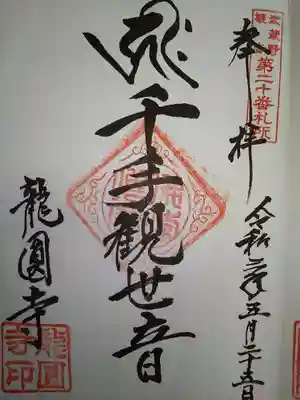 武蔵野観音
第二十番札所
奉拝
令和二年五月二十五日
千手観世音
龍圓寺
龍圓寺印